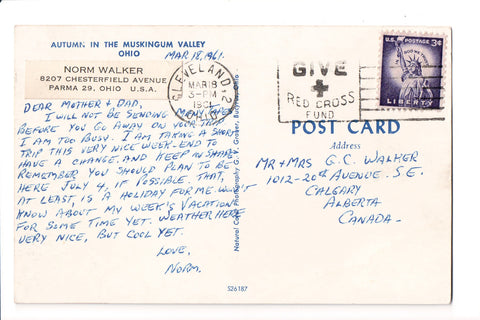 AUTUMN IN THE MUSKINGUM VALLEY
OHIO
MAR 18, 1961.
NORM WALKER
8207 CHESTERFIELD AVENUE
PARMA 29, OHIO U.S.A.
DEAR MOTHER & DAD,
I WILL NOT BE SENDING
BEFORE YOU GO AWAY ON YOUR
I AM TOO BUSY. I AM TAKING A SHORT
TRIP THIS VERY NICE WEEK-END TO
HAVE A CHANGE, AND KEEP IN SHAPE
REMEMBER YOU SHOULD PLAN TO BE
HERE JULY 4, IF POSSIBLE. THAT,
AT LEAST, IS A HOLIDAY FOR ME. WON'T
KNOW ABOUT MY WEEK'S VACATION
FOR SOME TIME YET. WEATHER HERE
VERY NICE, BUT COOL YET.
LOVE,
NORM.
S26187
Natural Color Photography
CLEVELAND, 2
MAR 18
3-PM
1961
OHIO
GIVE
RED CROSS
FUND
U.S. POSTAGE 3¢
LIBERTY
POST CARD
Address
MR & MRS G.C. WALKER
1012-20th AVENUE. S.E.
CALGARY
ALBERTA
CANADA.